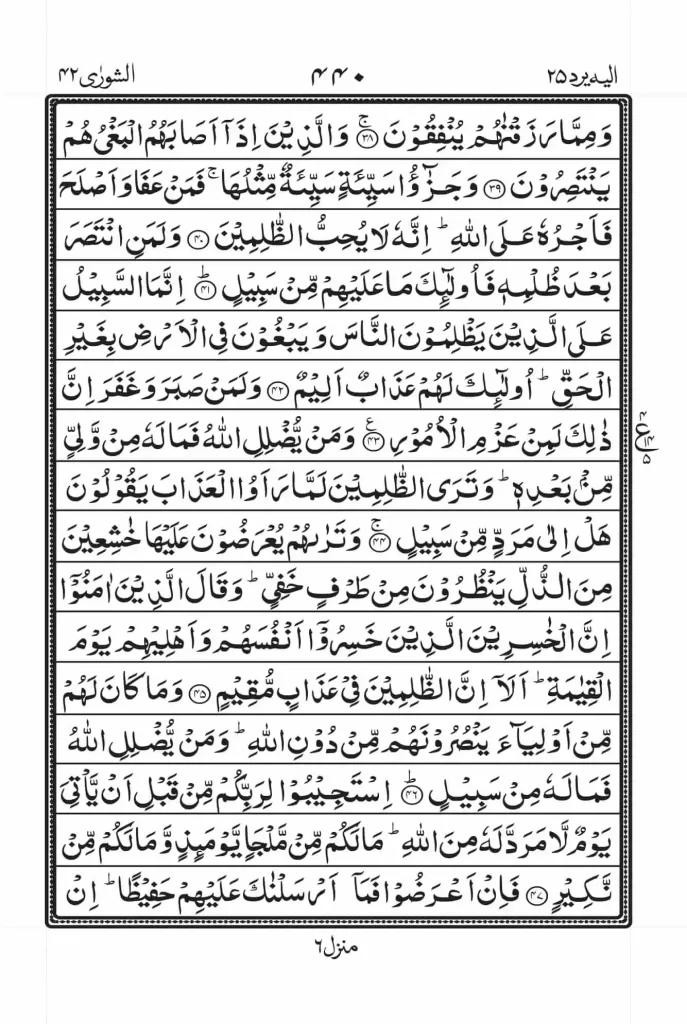 الیه یرد ۲۵
۴۴۰
الشورٰی ۴۲
وَمِمَّا رَزَقْنٰهُمْ يُنْفِقُوْنَ ۚ﴿۳۸﴾ وَالَّذِيْنَ اِذَاۤ اَصَابَهُمُ الْبَغْيُ هُمْ
يَنْتَصِرُوْنَ ﴿۳۹﴾ وَجَزٰٓؤُا سَيِّئَةٍ سَيِّئَةٌ مِّثْلُهَا ۚ فَمَنْ عَفَا وَاَصْلَحَ
فَاَجْرُهٗ عَلَى اللّٰهِ ؕ اِنَّهٗ لَا يُحِبُّ الظّٰلِمِيْنَ ﴿۴۰﴾ وَلَمَنِ انْتَصَرَ
بَعْدَ ظُلْمِهٖ فَاُولٰٓئِكَ مَا عَلَيْهِمْ مِّنْ سَبِيْلٍ ؕ﴿۴۱﴾ اِنَّمَا السَّبِيْلُ
عَلَى الَّذِيْنَ يَظْلِمُوْنَ النَّاسَ وَيَبْغُوْنَ فِي الْاَرْضِ بِغَيْرِ
الْحَقِّ ؕ اُولٰٓئِكَ لَهُمْ عَذَابٌ اَلِيْمٌ ﴿۴۲﴾ وَلَمَنْ صَبَرَ وَغَفَرَ اِنَّ
ذٰلِكَ لَمِنْ عَزْمِ الْاُمُوْرِ ﴿۴۳﴾ ع وَمَنْ يُّضْلِلِ اللّٰهُ فَمَا لَهٗ مِنْ وَّلِيٍّ
مِّنْۢ بَعْدِهٖ ؕ وَتَرَى الظّٰلِمِيْنَ لَمَّا رَاَوُا الْعَذَابَ يَقُوْلُوْنَ
هَلْ اِلٰى مَرَدٍّ مِّنْ سَبِيْلٍ ۚ﴿۴۴﴾ وَتَرٰىهُمْ يُعْرَضُوْنَ عَلَيْهَا خٰشِعِيْنَ
مِنَ الذُّلِّ يَنْظُرُوْنَ مِنْ طَرْفٍ خَفِيٍّ ؕ وَقَالَ الَّذِيْنَ اٰمَنُوْۤا
اِنَّ الْخٰسِرِيْنَ الَّذِيْنَ خَسِرُوْۤا اَنْفُسَهُمْ وَاَهْلِيْهِمْ يَوْمَ
الْقِيٰمَةِ ؕ اَلَاۤ اِنَّ الظّٰلِمِيْنَ فِيْ عَذَابٍ مُّقِيْمٍ ﴿۴۵﴾ وَمَا كَانَ لَهُمْ
مِّنْ اَوْلِيَآءَ يَنْصُرُوْنَهُمْ مِّنْ دُوْنِ اللّٰهِ ؕ وَمَنْ يُّضْلِلِ اللّٰهُ
فَمَا لَهٗ مِنْ سَبِيْلٍ ؕ﴿۴۶﴾ اِسْتَجِيْبُوْا لِرَبِّكُمْ مِّنْ قَبْلِ اَنْ يَّاْتِيَ
يَوْمٌ لَّا مَرَدَّ لَهٗ مِنَ اللّٰهِ ؕ مَا لَكُمْ مِّنْ مَّلْجَاٍ يَّوْمَئِذٍ وَّمَا لَكُمْ مِّنْ
نَّكِيْرٍ ﴿۴۷﴾ فَاِنْ اَعْرَضُوْا فَمَاۤ اَرْسَلْنٰكَ عَلَيْهِمْ حَفِيْظًا ؕ اِنْ
منزل ۶